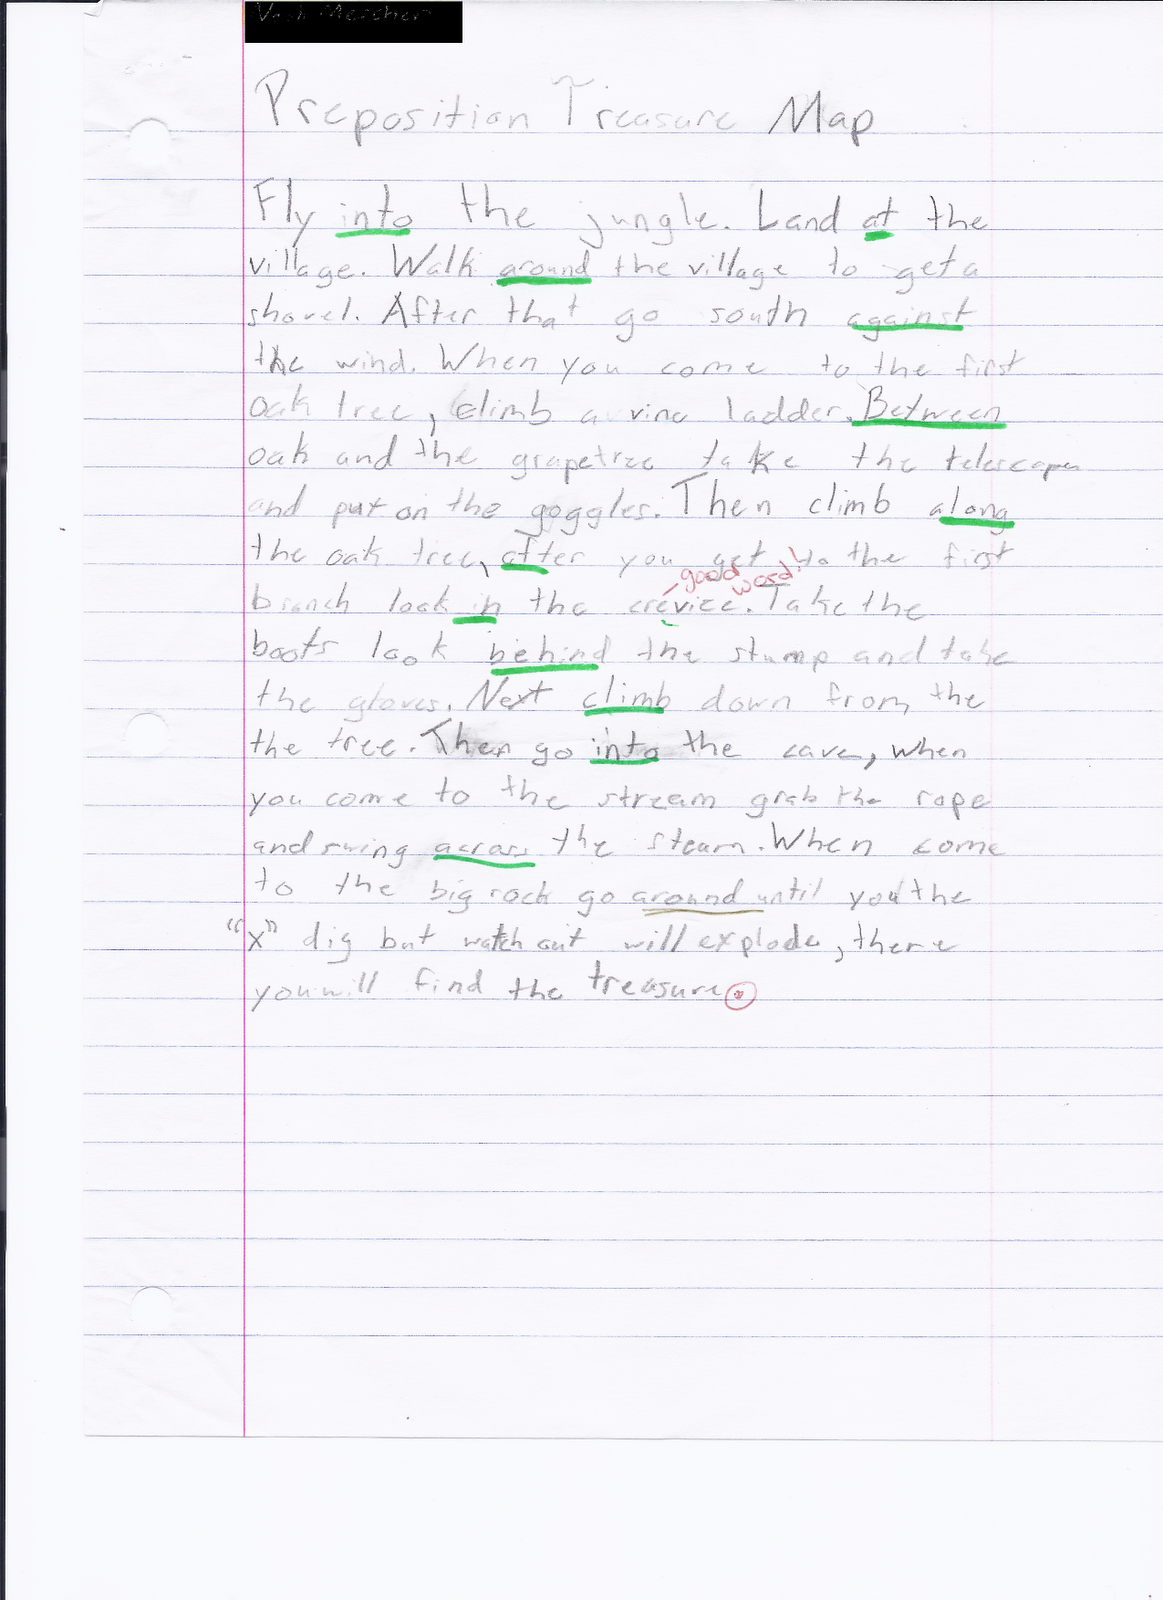 Preposition Treasure Map
Fly into the jungle. Land at the
village. Walk around the village to get a
shovel. After that go south against
the wind. When you come to the first
oak tree, climb a vine ladder. Between
oak and the grapetree take the telescope
and put on the goggles. Then climb along
the oak tree, after you get to the first
good word!
branch look in the crevice. Take the
boots look behind the stump and take
the gloves. Next climb down from the
the tree. Then go into the cave, when
you come to the stream grab the rope
and swing across the steam. When come
to the big rock go around until you the
"x" dig but watch out will explode, there
you will find the treasure.